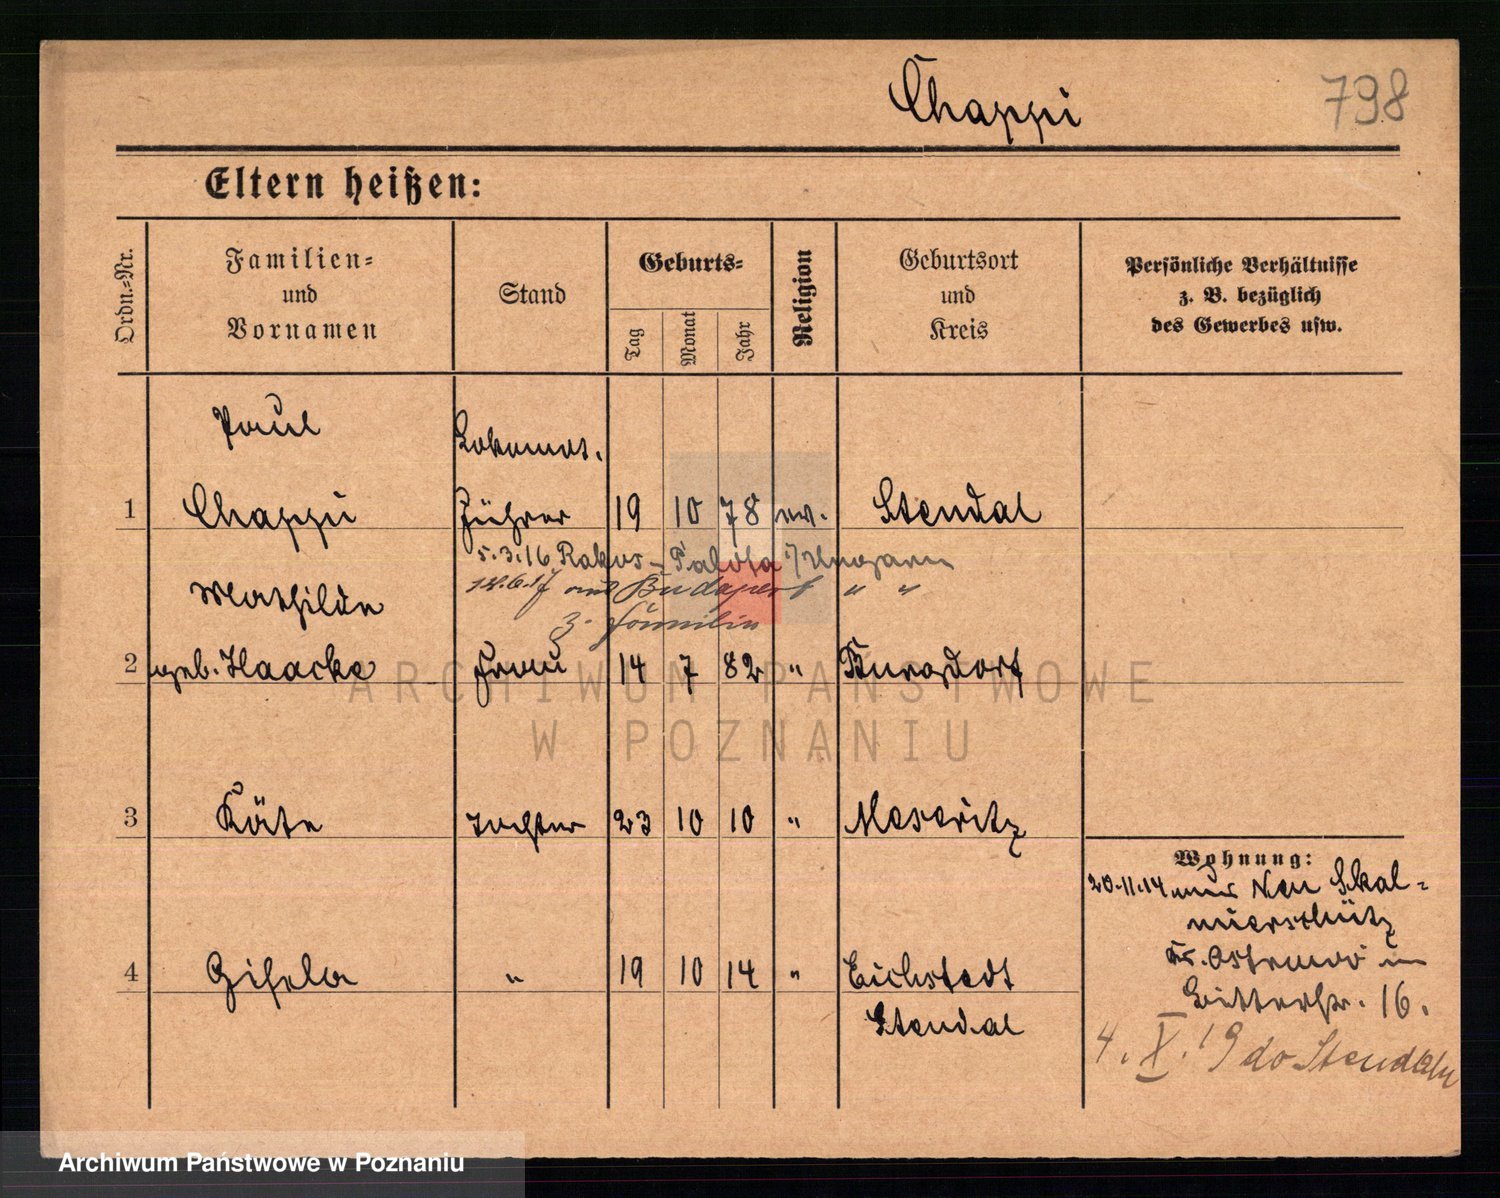 Chappi 798
Eltern heißen:
Ordn.-Nr.
Familien-
und
Vornamen
Stand
Geburts-
Tag
Monat
Jahr
Religion
Geburtsort
und
Kreis
Persönliche Verhältnisse
z. B. bezüglich
des Gewerbes usw.
Paul
Lokomot.
1 Chappi Führer 19 10 78 ev. Stendal
5.3.16 Rakos-Palota / Ungarn
aus Budapest " "
z. Familie
Mathilde
2 geb. Haacke Frau 14 7 82 " Burgdorf
3 Käte Tochter 23 10 10 " Meseritz
4 Gisela " 19 10 14 " Eichstedt
Stendal
Wohnung:
20.11.14 aus Neu Skal-
mierschütz
Kr. Ostrowo in
Bitterstr. 16.
4. X. 19 do Stendal
ARCHIWUM PAŃSTWOWE
W POZNANIU
Archiwum Państwowe w Poznaniu